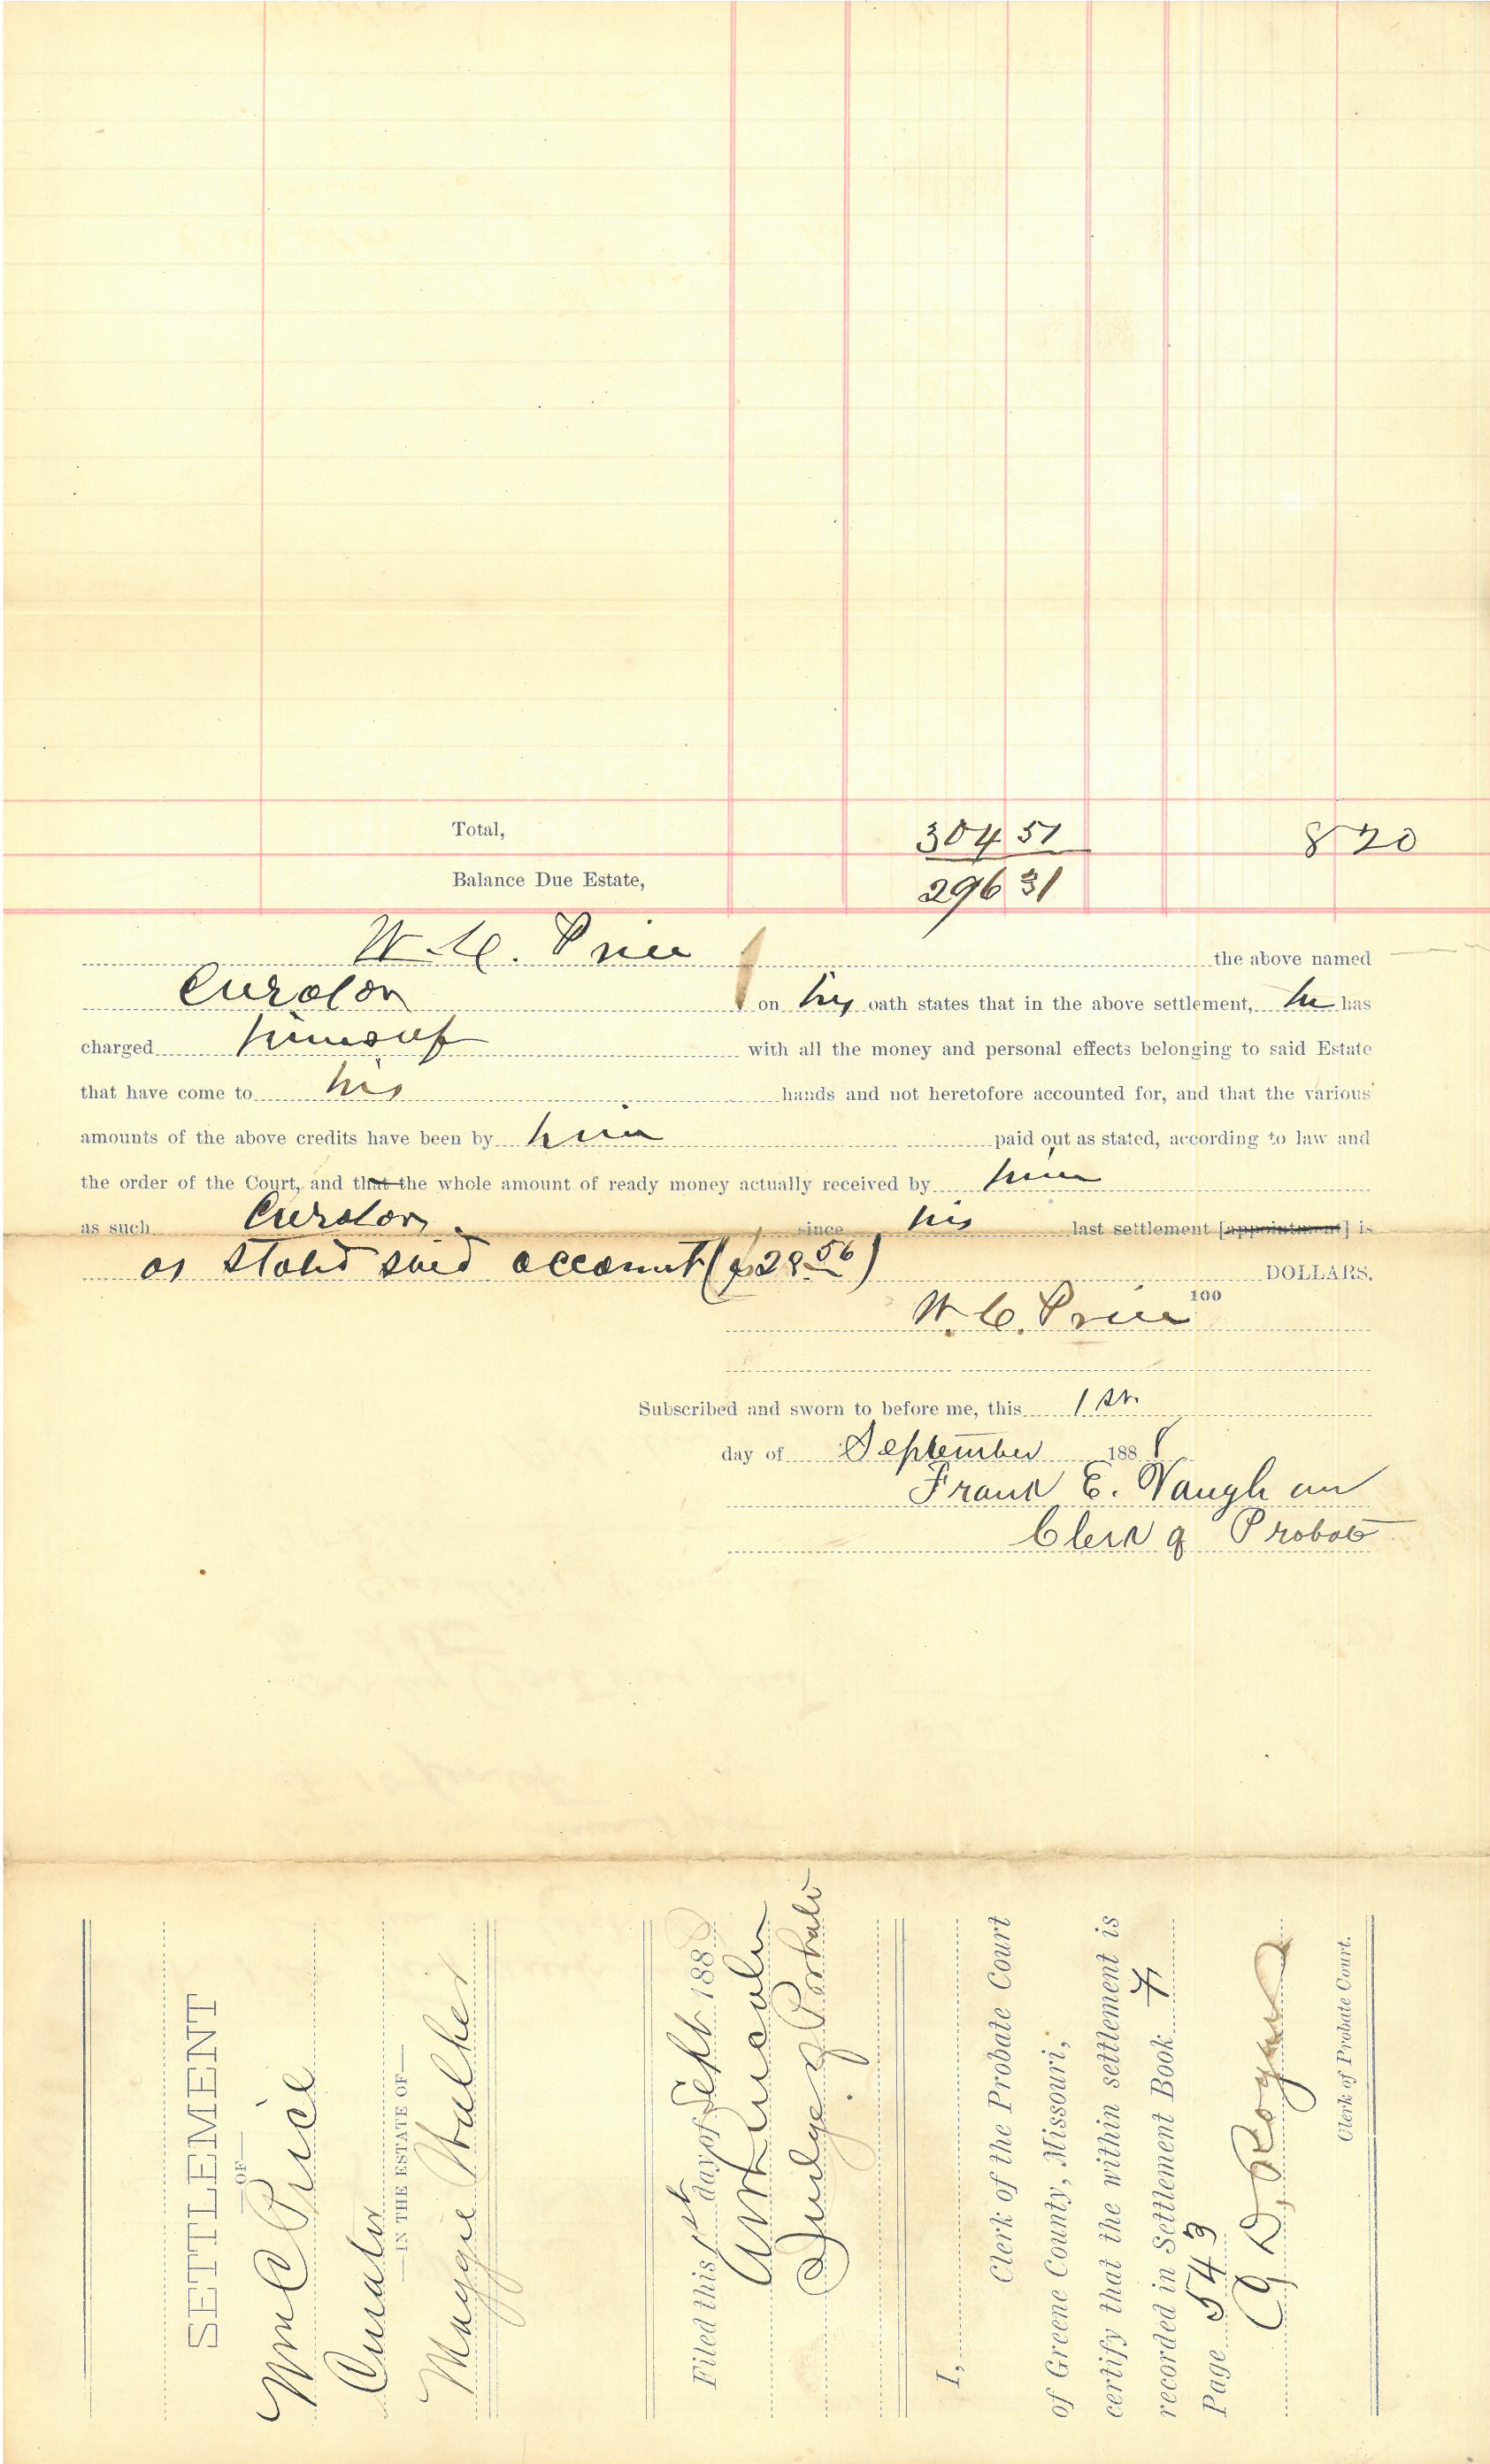 Total, 304 51 8 20
Balance Due Estate, 296 31
W. C. Price the above named
Curator on his oath states that in the above settlement, he has
charged himself with all the money and personal effects belonging to said Estate
that have come to his hands and not heretofore accounted for, and that the various
amounts of the above credits have been by him paid out as stated, according to law and
the order of the Court, and that the whole amount of ready money actually received by him
as such Curator since his last settlement [appointment] is
as stated said account ($28 56) DOLLARS.
100
W. C. Price
Subscribed and sworn to before me, this 1st
day of September 1888
Frank E. Vaughan
Clerk of Probate
SETTLEMENT
—OF—
Wm C Price
Curator
—IN THE ESTATE OF—
Maggie Walker
Filed this 1st day of Sept 188
Judge of Probate
I,
Clerk of the Probate Court
of Greene County, Missouri,
certify that the within settlement is
recorded in Settlement Book
Page 543
Rogers
Clerk of Probate Court.